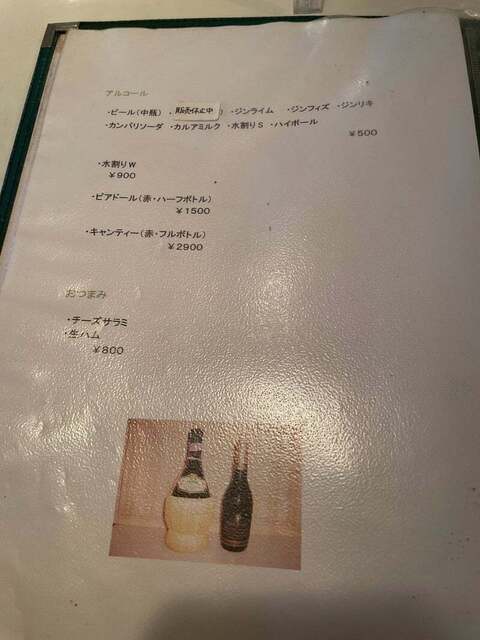 アルコール
・ビール(中瓶) ・販売休止中) ・ジンライム ・ジンフィズ ・ジンリキ
・カンパリソーダ ・カルアミルク ・水割りS ・ハイボール
￥500
・水割りW
￥900
・ピアドール(赤・ハーフボトル)
￥1500
・キャンティー(赤・フルボトル)
￥2900
おつまみ
・チーズサラミ
・生ハム
￥800